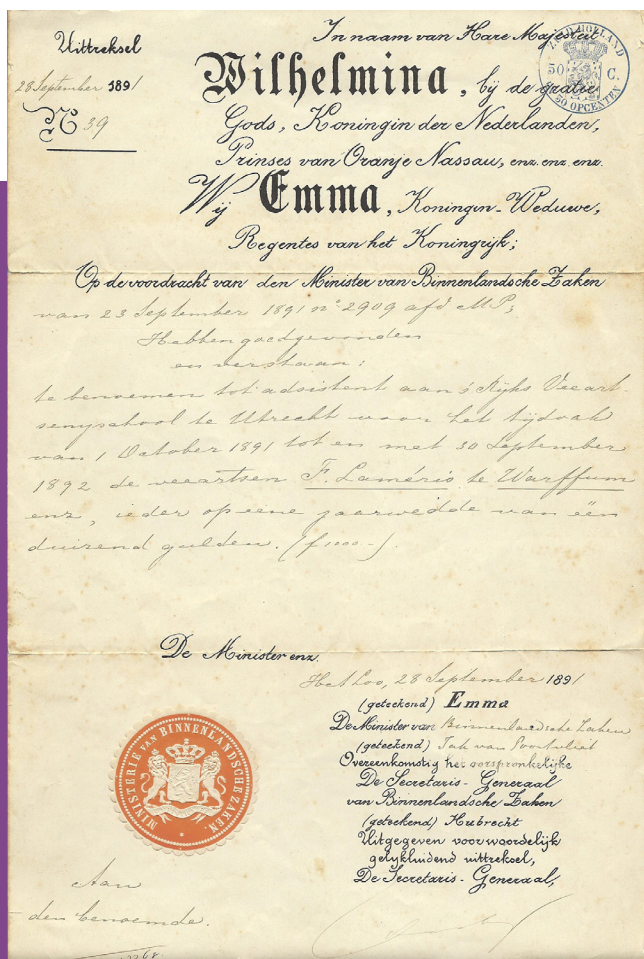 Uittreksel
28 September 1891
No 39
In naam van Hare Majesteit
Wilhelmina, bij de gratie
Gods, Koningin der Nederlanden,
Prinses van Oranje Nassau, enz. enz. enz.
Wij Emma, Koningin-Weduwe,
Regentes van het Koningrijk;
ZUID HOLLAND
50 C.
50 OPCENTEN
Op de voordracht van den Minister van Binnenlandsche Zaken
van 23 September 1891 no 2909 afd MP;
Hebben goedgevonden
en verstaan:
te benoemen tot adsistent aan 's Rijks Veeart-
senijschool te Utrecht voor het tijdvak
van 1 October 1891 tot en met 30 September
1892 de veeartsen F. Laméris te Warffum
enz, ieder op eene jaarwedde van één
duizend gulden. (f 1000.-).
De Minister enz.
Het Loo, 28 September 1891
(geteekend) Emma
De Minister van Binnenlandsche Zaken
(geteekend) Tak van Poortvliet
Overeenkomstig het oorspronkelijke
De Secretaris-Generaal
van Binnenlandsche Zaken
(geteekend) Hubrecht
Uitgegeven voor woordelijk
gelijkluidend uittreksel,
De Secretaris-Generaal,
MINISTERIE VAN BINNENLANDSCHE ZAKEN.
Aan
den benoemde.